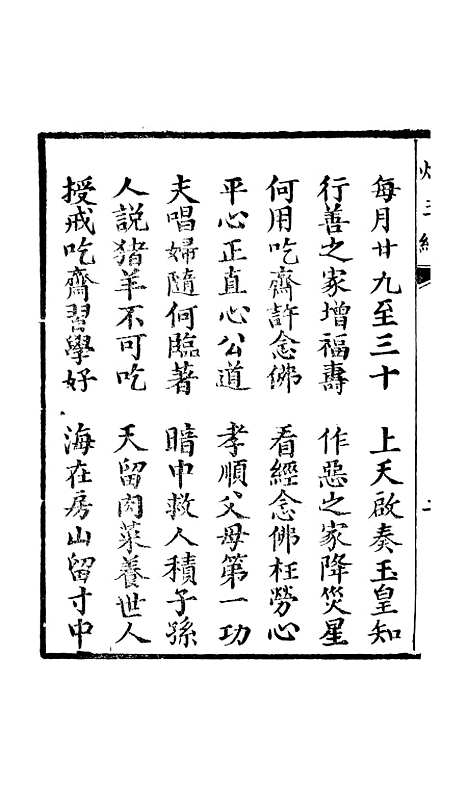 每月廿九至三十　上天啟奏玉皇知
行善之家增福壽　作惡之家降災星
何用吃齋許念佛　看經念佛枉勞心
平心正直心公道　孝順父母第一功
夫唱婦隨何臨著　暗中救人積子孫
人説猪羊不可吃　天留肉菜養世人
授戒吃齋習學好　海在房山留寸中